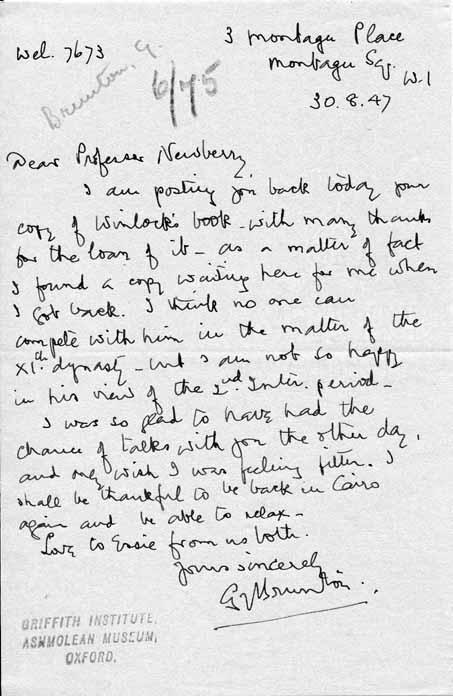 Wel. 7673
3 Montagu Place
Montagu Sq.
W.1
Brunton, G.
6/75
30.8.47
Dear Professor Newberry
I am posting you back today your
copy of Winlock's book - with many thanks
for the loan of it - as a matter of fact
I found a copy waiting here for me when
I got back. I think no one can
compete with him in the matter of the
XIth dynasty - but I am not so happy
in his view of the 2nd Inter. period -
I was so glad to have had the
chance of talks with you the other day,
and only wish I was feeling fitter. I
shall be thankful to be back in Cairo
again and be able to relax -
Love to Essie from us both.
Yours sincerely
G Brunton.
GRIFFITH INSTITUTE,
ASHMOLEAN MUSEUM,
OXFORD.